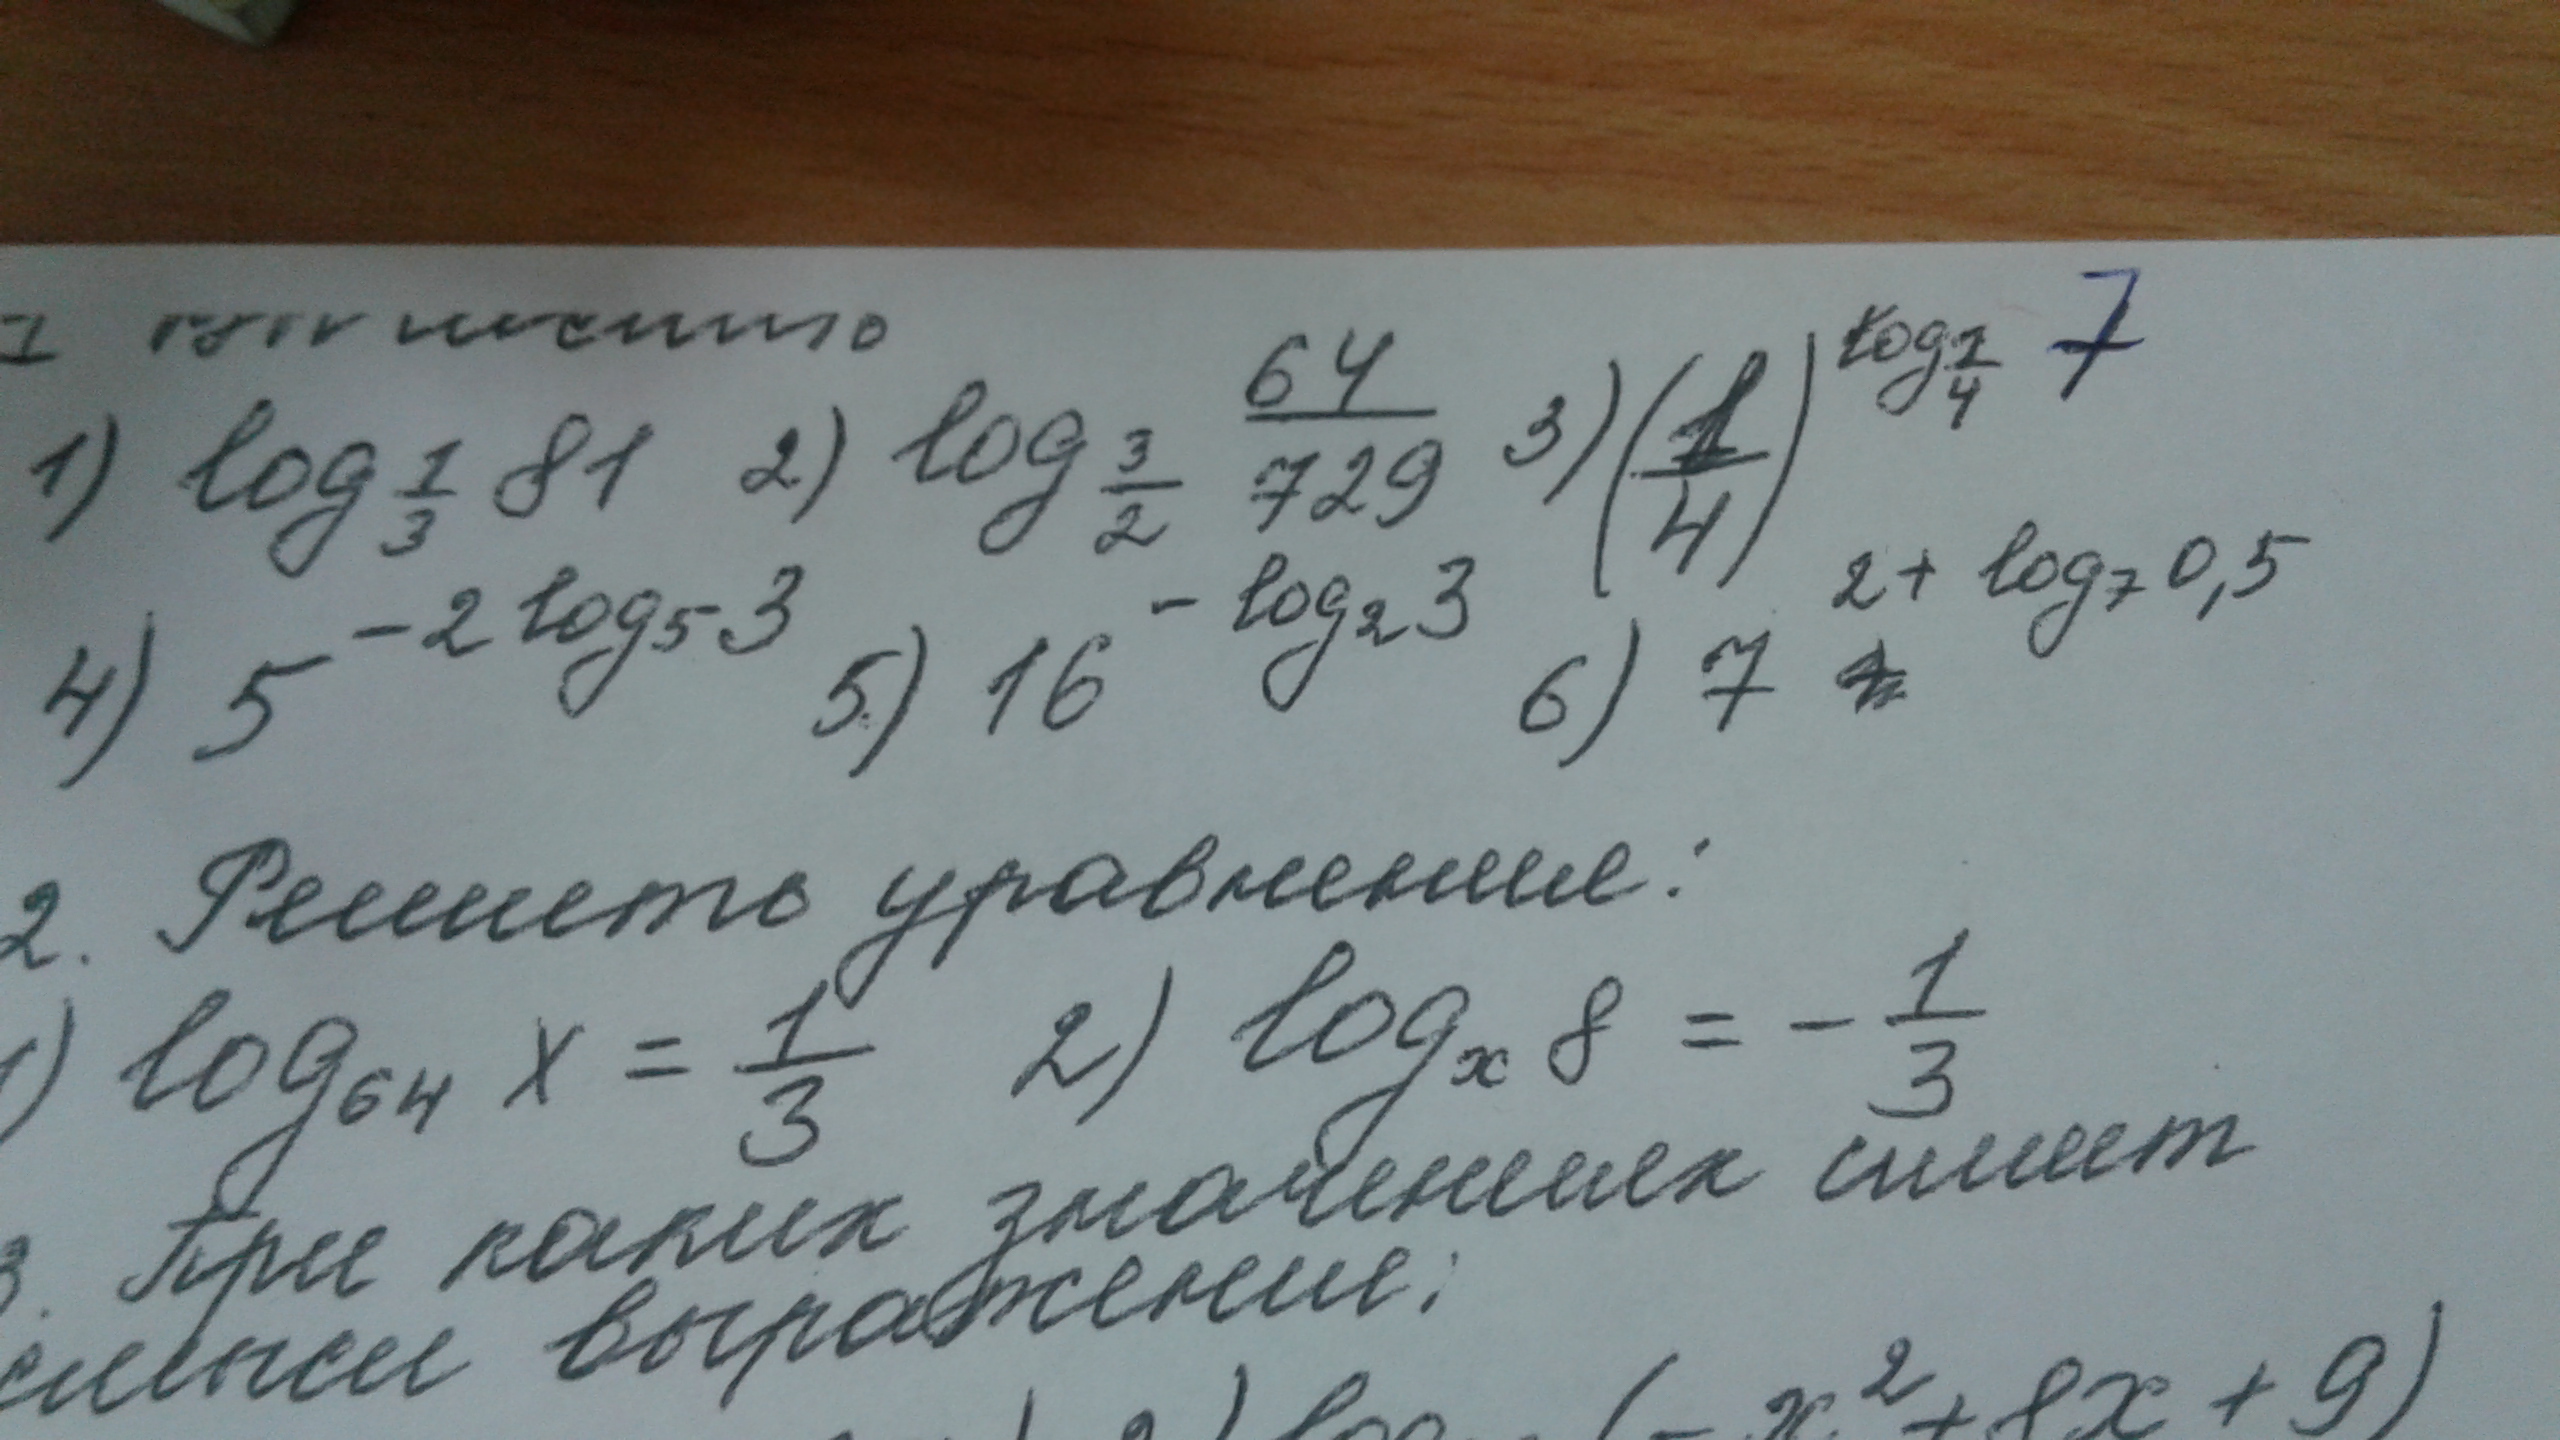 1) log_{1/3} 81 2) log_{3/2} 64/729 3) (1/4)^{log_{1/4} 7}
4) 5^{-2 log_5 3} 5) 16^{-log_2 3} 6) 7^{2 + log_7 0,5}
2. Решить уравнение:
1) log_{64} x = 1/3 2) log_x 8 = -1/3
3. При каких значениях имеет
смысл выражение:
2) log (-x² + 8x + 9)